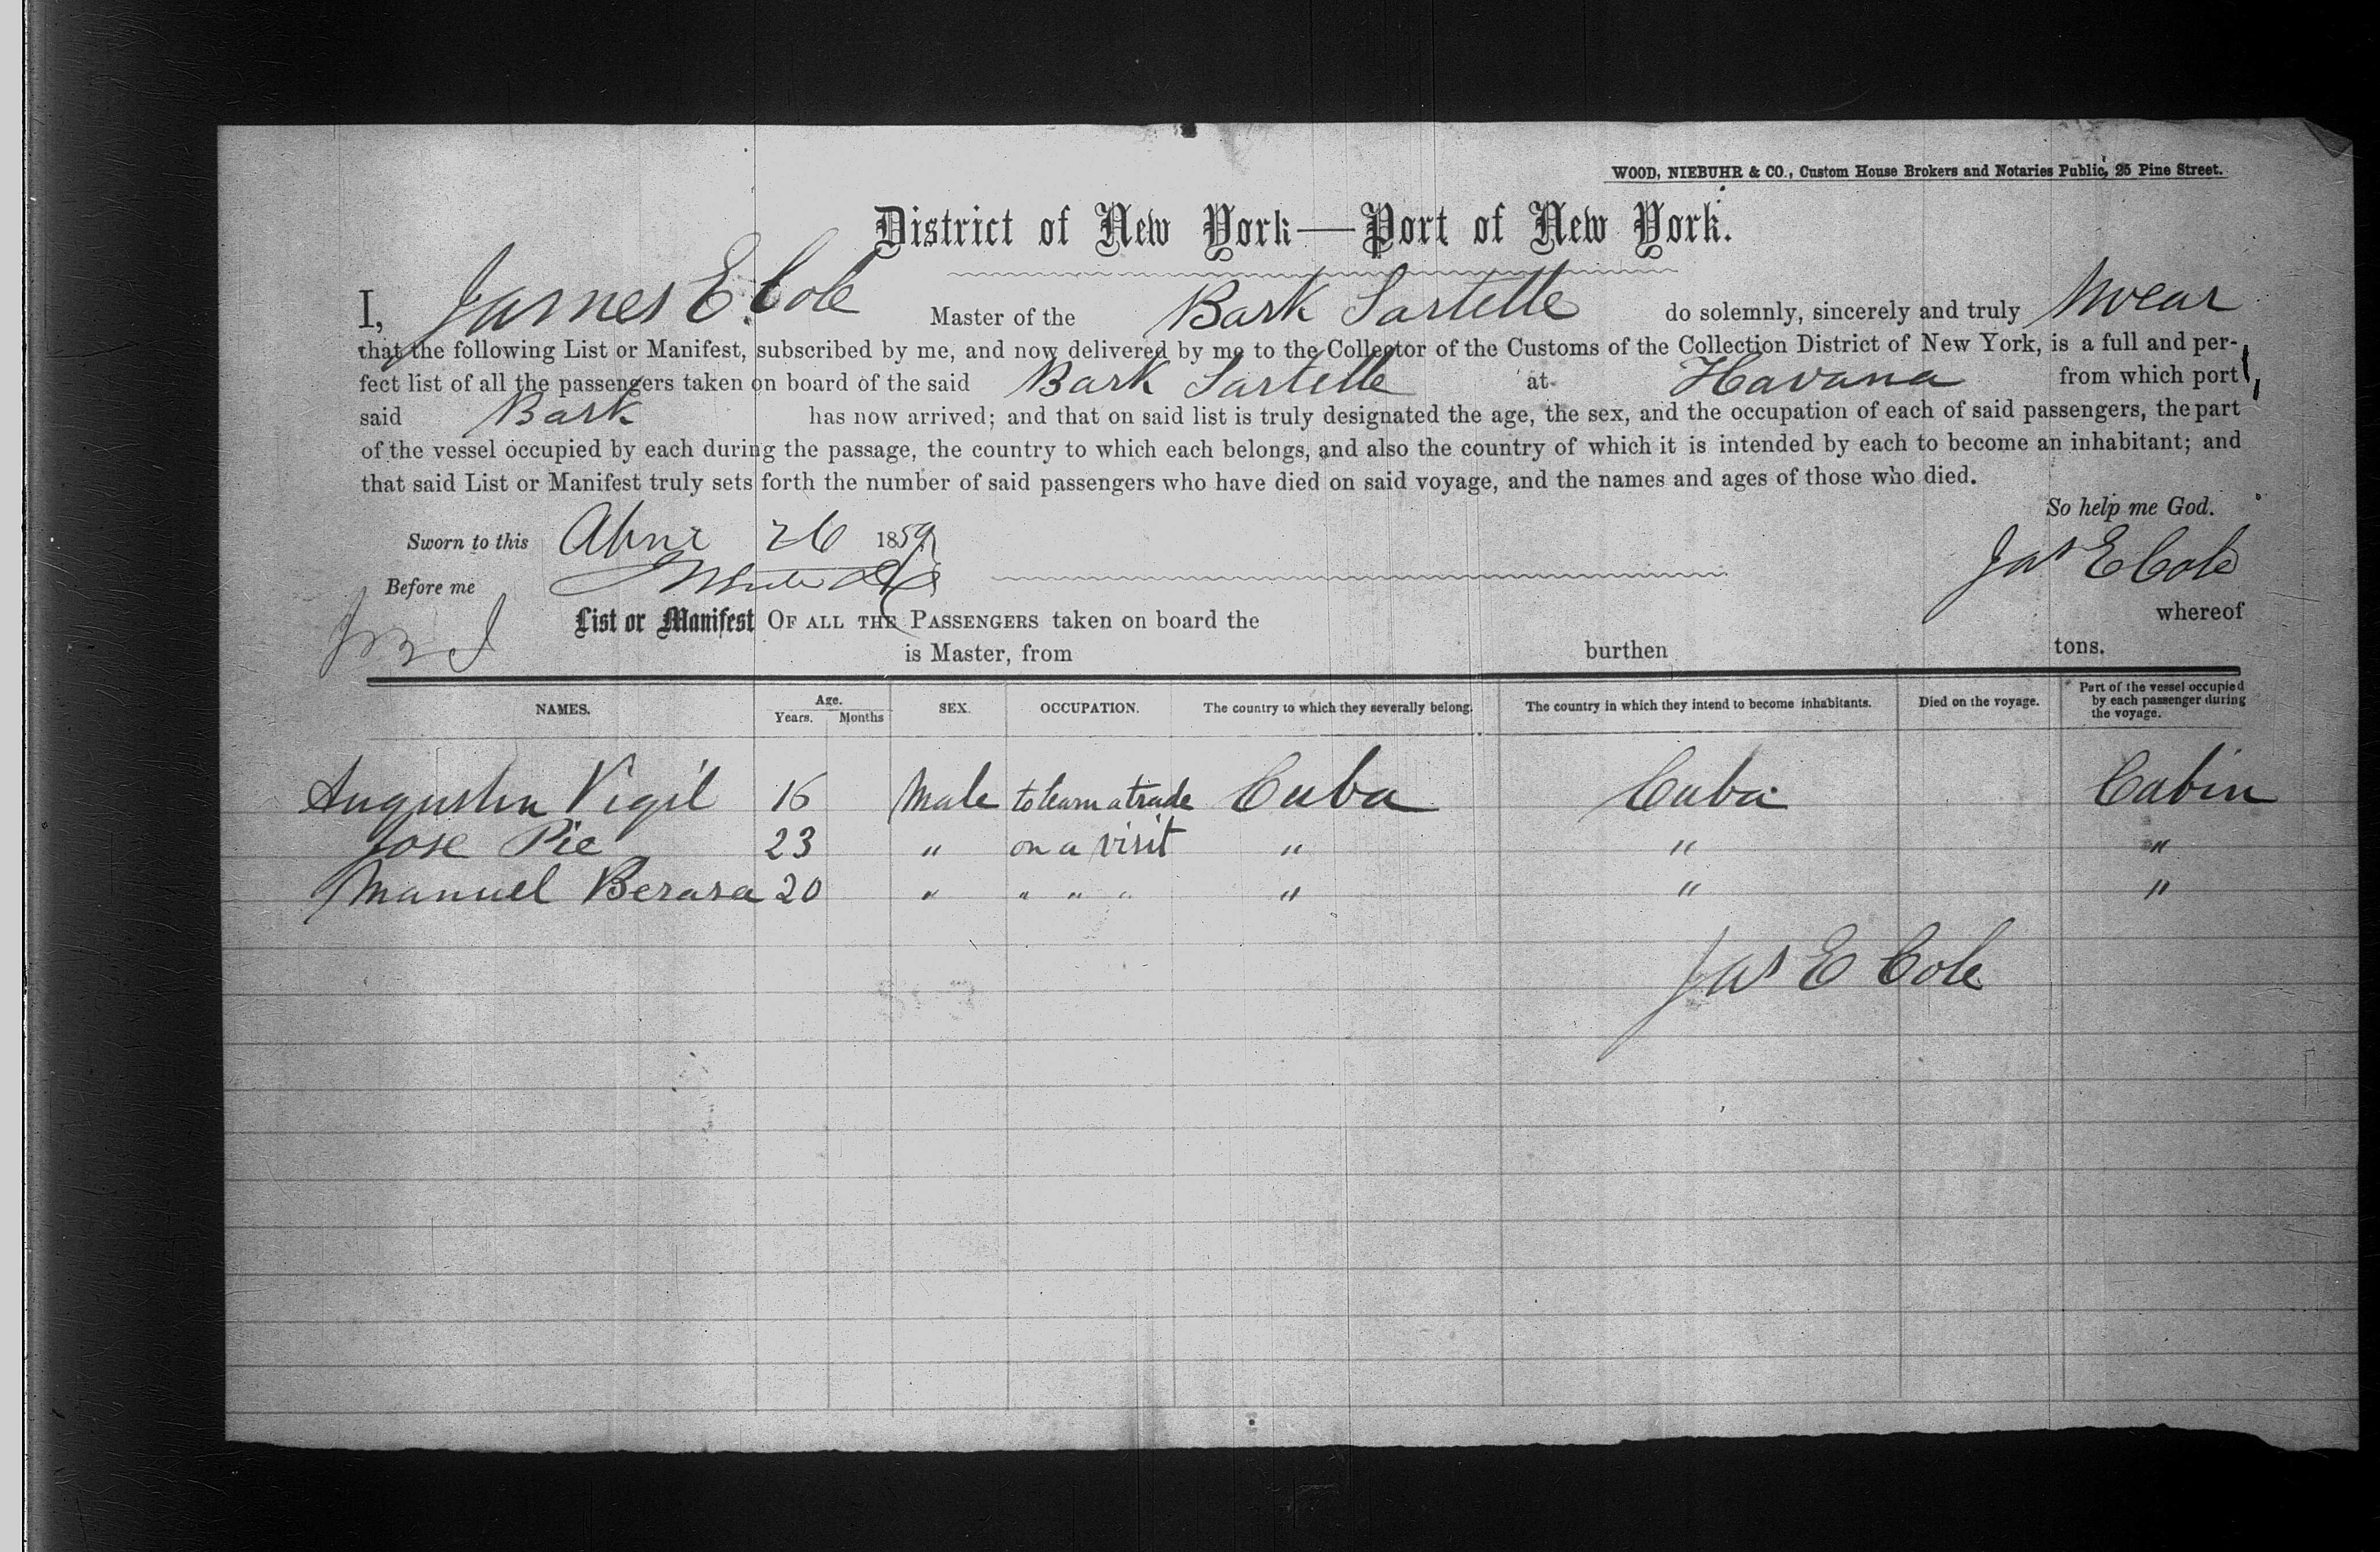 WOOD, NIEBUHR & CO., Custom House Brokers and Notaries Public, 25 Pine Street.
District of New York—Port of New York.
I, James E. Cole Master of the Bark Sartelle do solemnly, sincerely and truly swear
that the following List or Manifest, subscribed by me, and now delivered by me to the Collector of the Customs of the Collection District of New York, is a full and per-
fect list of all the passengers taken on board of the said Bark Sartelle at Havana from which port
said Bark has now arrived; and that on said list is truly designated the age, the sex, and the occupation of each of said passengers, the part
of the vessel occupied by each during the passage, the country to which each belongs, and also the country of which it is intended by each to become an inhabitant; and
that said List or Manifest truly sets forth the number of said passengers who have died on said voyage, and the names and ages of those who died.
So help me God.
Sworn to this 26 1859
Jas E Cole
Before me
List or Manifest OF ALL THE PASSENGERS taken on board the whereof
is Master, from burthen tons.
NAMES. Age. Years. Months SEX. OCCUPATION. The country to which they severally belong. The country in which they intend to become inhabitants. Died on the voyage. Part of the vessel occupied by each passenger during the voyage.
Augustin Vigil 16 Male to learn a trade Cuba Cuba Cabin
Jose Pie 23 " on a visit " " "
Manuel Berasa 20 " " " " " " "
Jas E Cole